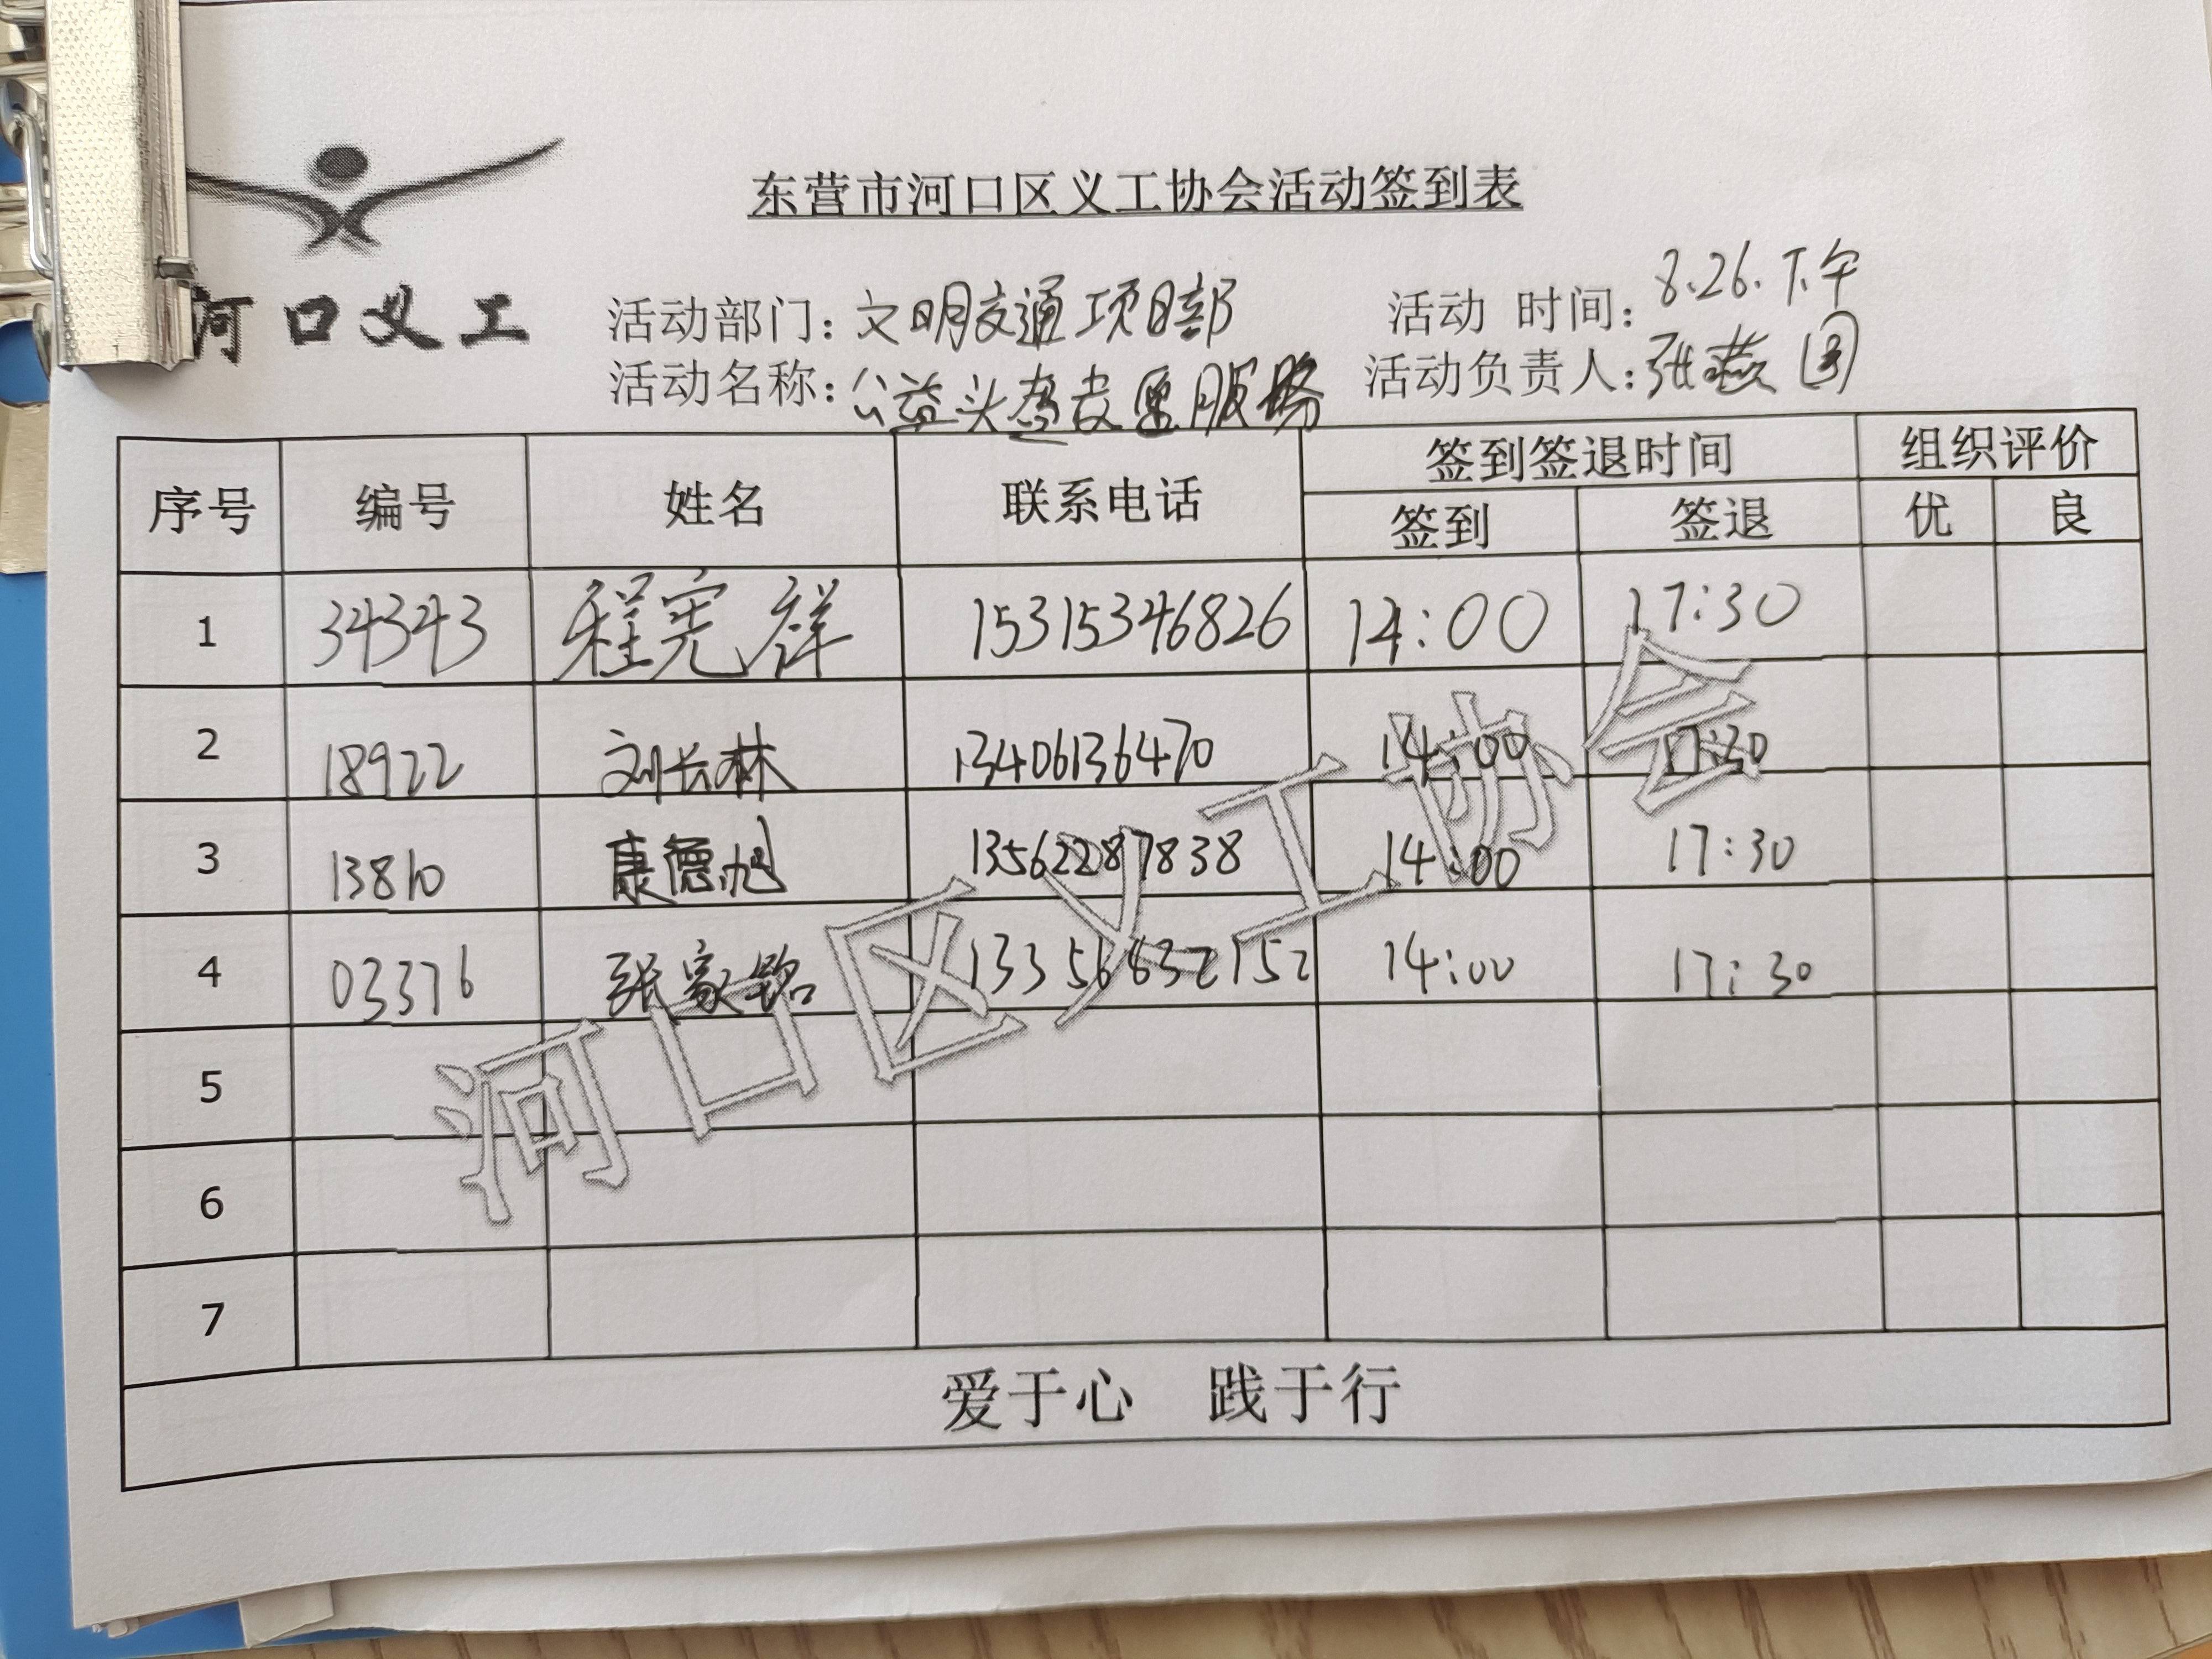 东营市河口区义工协会活动签到表
河口义工
活动部门：文明交通项目部 活动 时间：8.26.下午
活动名称：公益头盔发放服务 活动负责人：张燕
序号 编号 姓名 联系电话 签到签退时间 组织评价
签到 签退 优 良
1 34343 程宪祥 15315346826 14:00 17:30
2 18922 刘长林 13406136470 14:00 17:30
3 13810 康德旭 13562287838 14:00 17:30
4 03376 张家铭 13356632152 14:00 17:30
5
6
7
河口区义工协会
爱于心 践于行